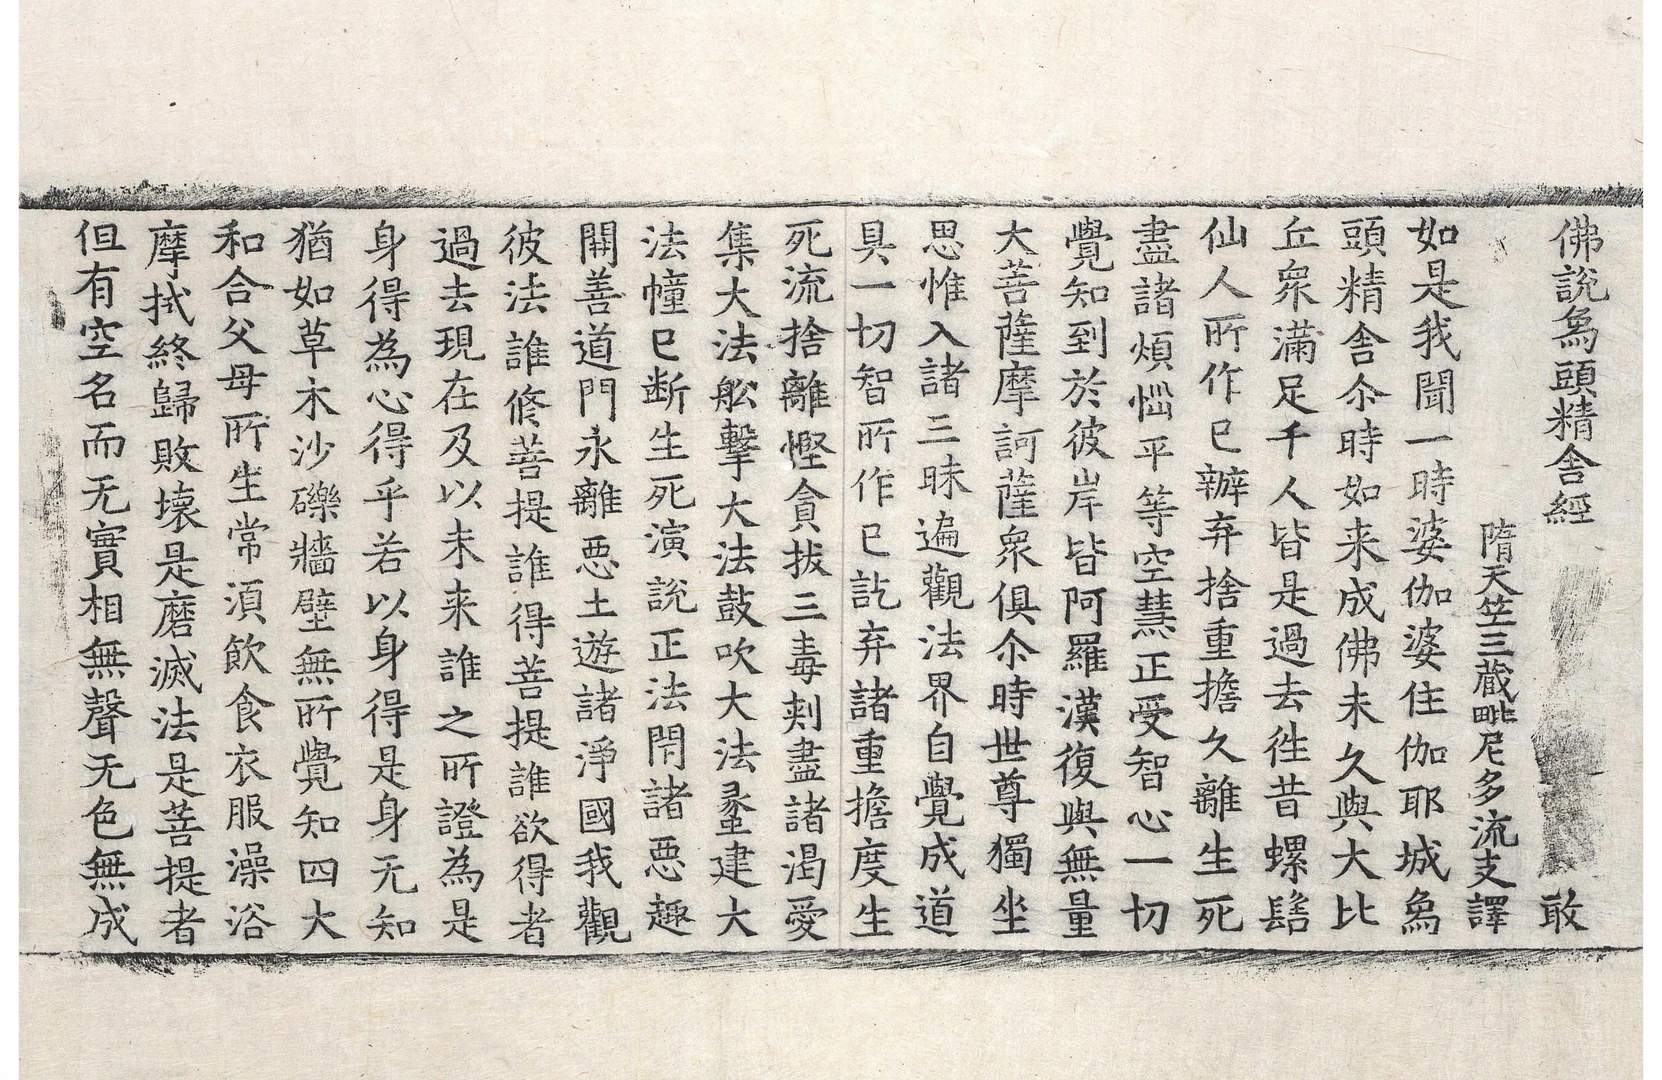 佛說象頭精舍經 敢
隋天竺三藏毗尼多流支譯
如是我聞一時婆伽婆住伽耶城象
頭精舍尒時如来成佛未久與大比
丘衆滿足千人皆是過去徃昔螺髻
仙人所作已辦弃捨重擔久離生死
盡諸煩惱平等空慧正受智心一切
覺知到於彼岸皆阿羅漢復與無量
大菩薩摩訶薩衆俱尒時世尊獨坐
思惟入諸三昧遍觀法界自覺成道
具一切智所作已訖弃諸重擔度生
死流捨離慳貪拔三毒刾盡諸渴愛
集大法舩擊大法鼓吹大法䗍建大
法幢已断生死演說正法閇諸惡趣
開善道門永離惡土遊諸淨國我觀
彼法誰修菩提誰得菩提誰欲得者
過去現在及以未来誰之所證為是
身得為心得乎若以身得是身无知
猶如草木沙礫牆壁無所覺知四大
和合父母所生常湏飲食衣服澡浴
摩拭終歸敗壊是磨滅法是菩提者
但有空名而无實相無聲无色無成